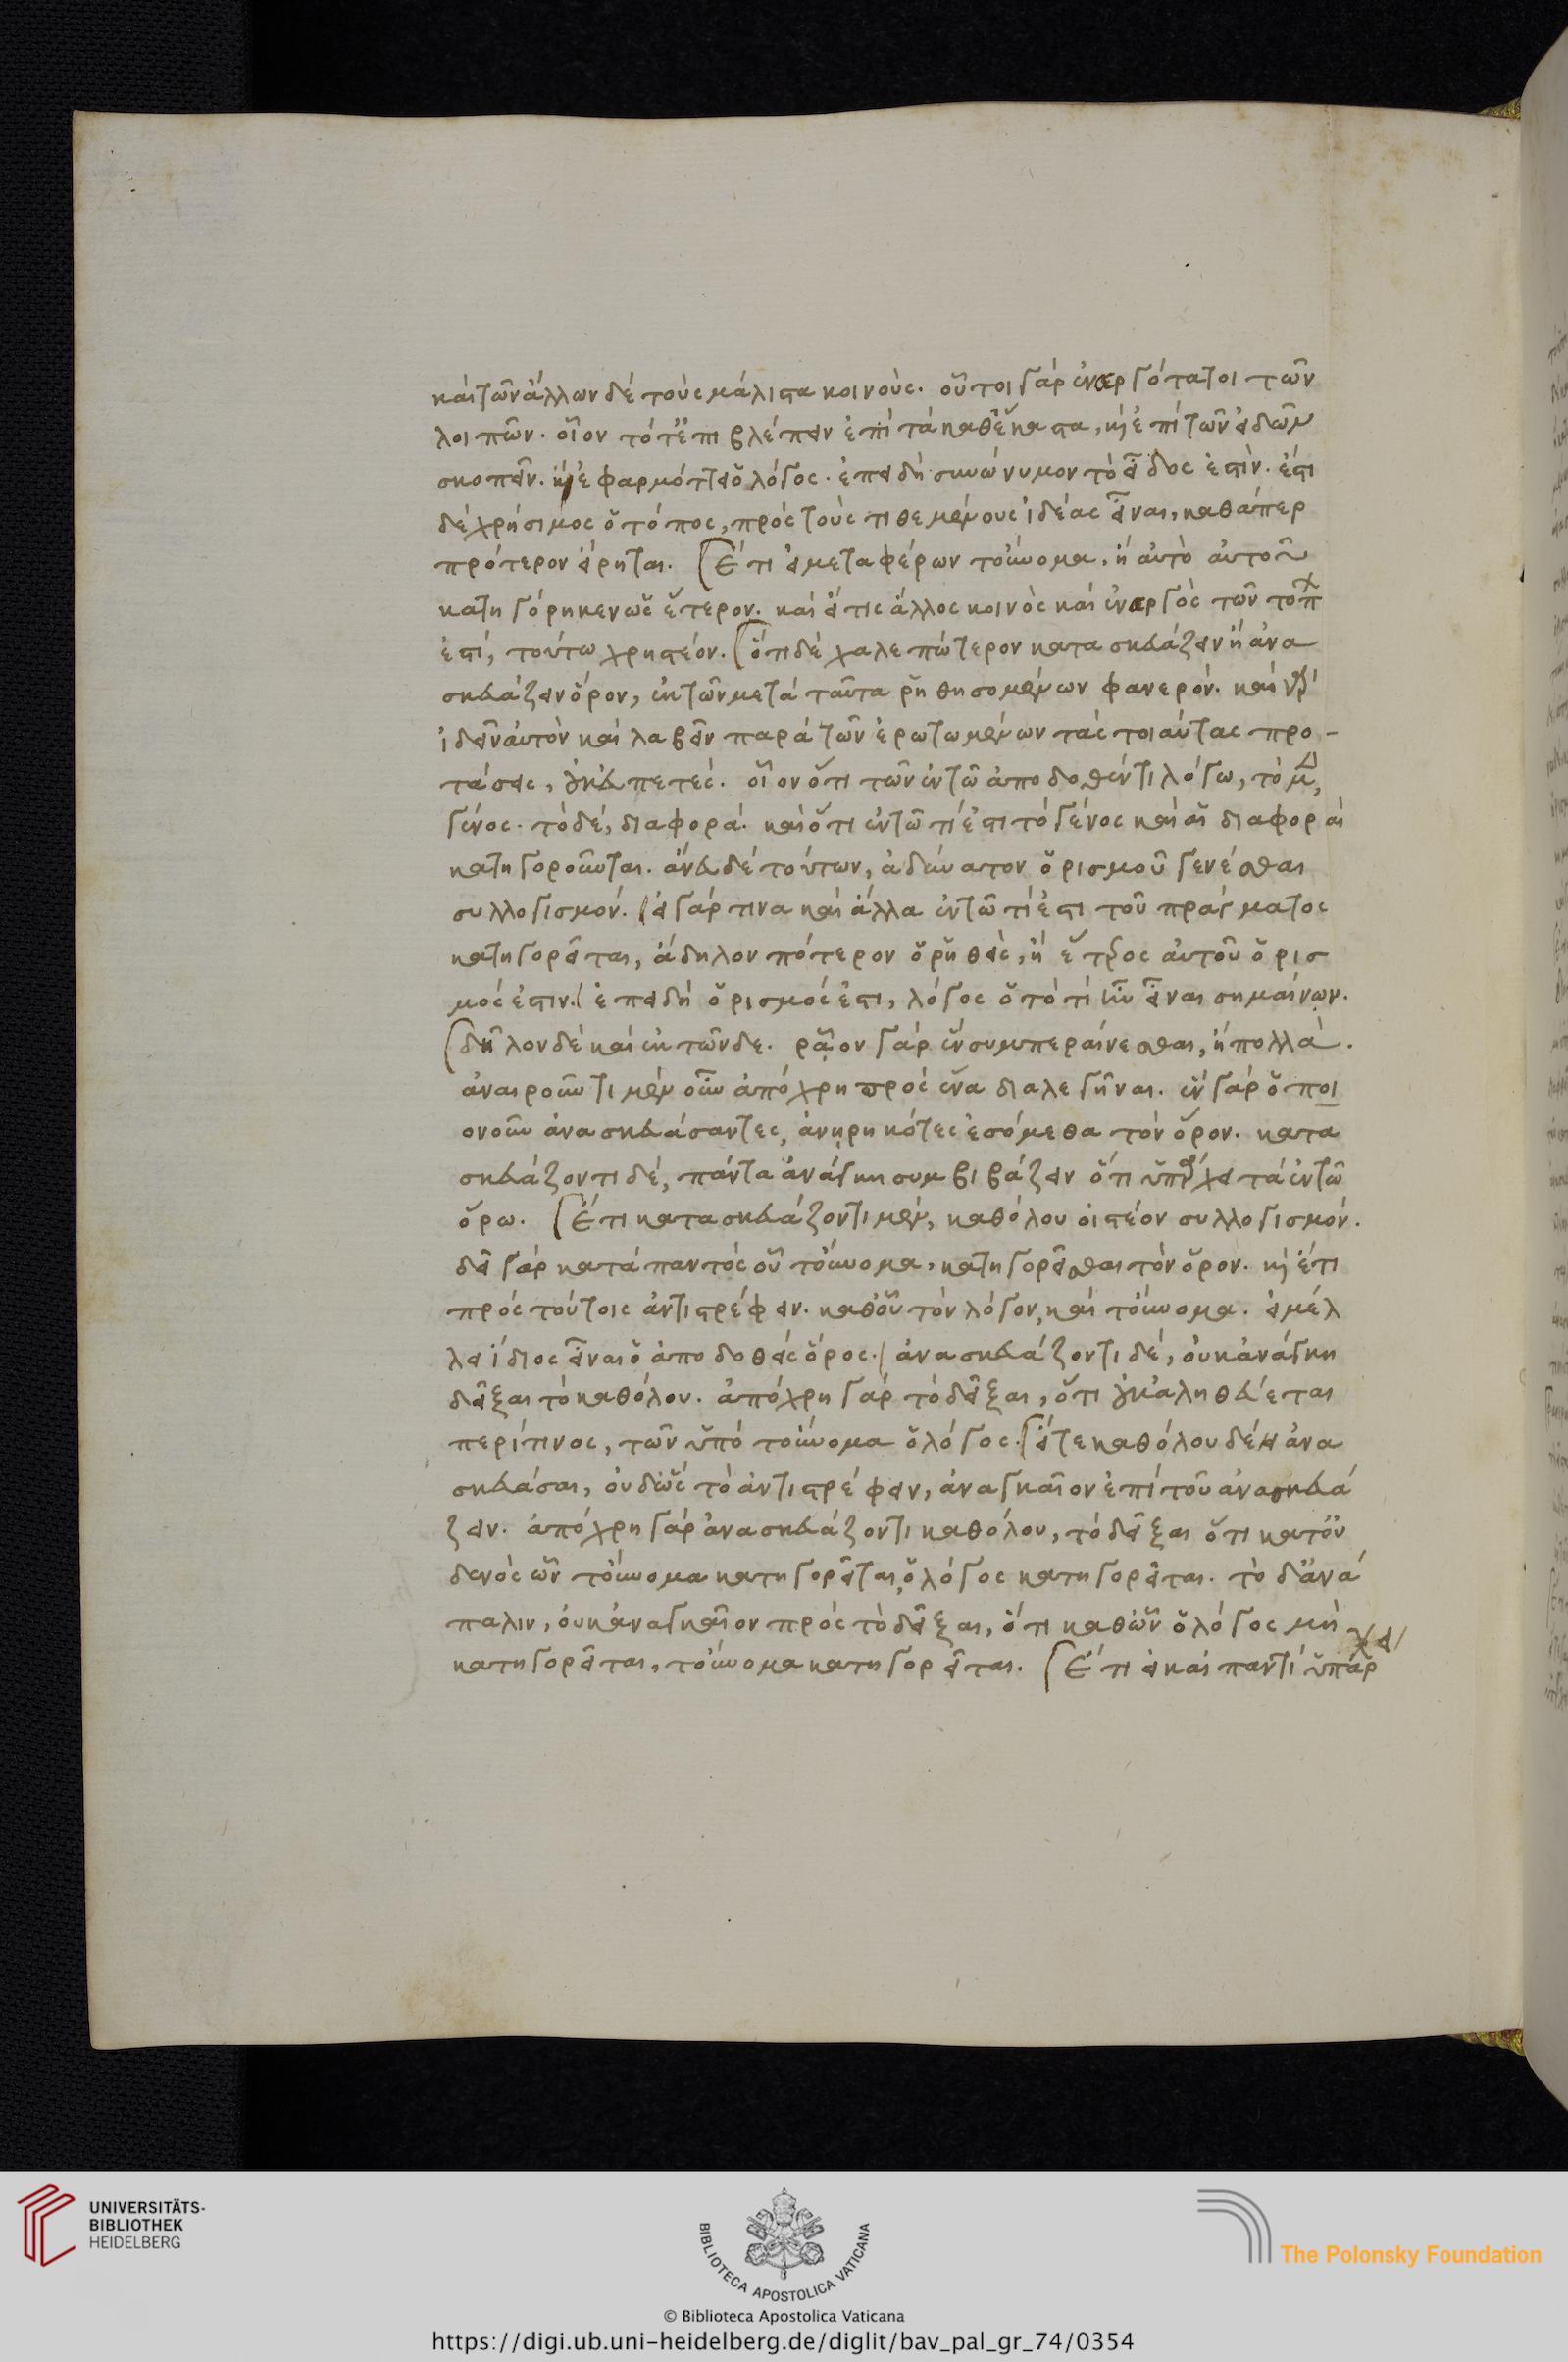 καὶ τῶν ἄλλων δὲ τοὺς μάλιστα κοινούς. οὗτοι γὰρ ἐνεργότατοι τῶν
λοιπῶν. οἷον τό τε ἐπιβλέπειν ἐπὶ τὰ καθ' ἕκαστα, καὶ ἐπὶ τῶν εἰδῶν
σκοπεῖν. εἰ ἐφαρμόττει ὁ λόγος. ἐπειδὴ συνώνυμον τὸ εἶδος ἐστίν. ἔστι
δὲ χρήσιμος ὁ τόπος, πρὸς τοὺς τιθεμένους ἰδέας εἶναι, καθάπερ
πρότερον εἴρηται. Ἔτι εἰ μεταφέρων τοὔνομα, ἢ αὐτὸ αὑτοῦ
κατηγόρηκεν ὡς ἕτερον. καὶ εἴ τις ἄλλος κοινὸς καὶ ἐνεργὸς τῶν τόπ
ἐστί, τούτω χρηστέον. ὅτι δὲ χαλεπώτερον κατασκευάζειν ἢ ἀνα
σκευάζειν ὅρον, ἐκ τῶν μετὰ ταῦτα ῥηθησομένων φανερόν. καὶ γὰρ
ἰδεῖν αὐτὸν καὶ λαβεῖν παρὰ τῶν ἐρωτωμένων τὰς τοιαύτας προ-
τάσεις, οὐκ εὐπετές. οἷον ὅτι τῶν ἐν τῶ ἀποδοθέντι λόγω, τὸ μὲν,
γένος. τὸ δὲ, διαφορά. καὶ ὅτι ἐν τῶ τί ἐστι τὸ γένος καὶ αἱ διαφοραὶ
κατηγοροῦνται. ἄνευ δὲ τούτων, ἀδύνατον ὁρισμοῦ γενέσθαι
συλλογισμόν. εἰ γάρ τινα καὶ ἄλλα ἐν τῶ τί ἐστι τοῦ πράγματος
κατηγορεῖται, ἄδηλον πότερον ὁ ῥηθεὶς, ἢ ἕτερος αὐτοῦ ὁρισ
μός ἐστιν. ἐπειδὴ ὁρισμός ἐστι, λόγος ὁ τὸ τί ἦν εἶναι σημαίνων.
δῆλον δὲ καὶ ἐκ τῶνδε. ῥᾶον γὰρ ἓν συμπεραίνεσθαι, ἢ πολλὰ.
ἀναιροῦντι μὲν οὖν ἀπόχρη πρὸς ἕνα διαλεγῆναι. ἓν γὰρ ὁποι
ονοῦν ἀνασκευάσαντες, ἀνῃρηκότες ἐσόμεθα τὸν ὅρον. κατα
σκευάζοντι δὲ, πάντα ἀνάγκη συμβιβάζειν ὅτι ὑπάρχει τὰ ἐν τῶ
ὅρω. Ἔτι κατασκευάζοντι μὲν, καθόλου οἰστέον συλλογισμόν.
δεῖ γὰρ κατὰ παντὸς οὗ τοὔνομα, κατηγορεῖσθαι τὸν ὅρον. καὶ ἔτι
πρὸς τούτοις ἀντιστρέφειν. καθ' οὗ τὸν λόγον, καὶ τοὔνομα. εἰ μέλ
λει ἴδιος εἶναι ὁ ἀποδοθεὶς ὅρος. ἀνασκευάζοντι δὲ, οὐκ ἀνάγκη
δεῖξαι τὸ καθόλου. ἀπόχρη γὰρ τὸ δεῖξαι, ὅτι οὐκ ἀληθεύεται
περί τινος, τῶν ὑπὸ τοὔνομα ὁ λόγος. εἴ τε καθόλου δέοι ἀνα
σκευάσαι, οὐδ' ὣς τὸ ἀντιστρέφειν, ἀναγκαῖον ἐπὶ τοῦ ἀνασκευά
ζειν. ἀπόχρη γὰρ ἀνασκευάζοντι καθόλου, τὸ δεῖξαι ὅτι κατ' οὐ
δενὸς ὧν τοὔνομα κατηγορεῖται, ὁ λόγος κατηγορεῖται. τὸ δ' ἀνά
παλιν, οὐκ ἀναγκαῖον πρὸς τὸ δεῖξαι, ὅτι καθ' ὧν ὁ λόγος μὴ
κατηγορεῖται, τοὔνομα κατηγορεῖται. Ἔτι εἰ καὶ παντὶ ὑπάρχει
UNIVERSITÄTS-
BIBLIOTHEK
HEIDELBERG
BIBLIOTECA APOSTOLICA VATICANA
The Polonsky Foundation
© Biblioteca Apostolica Vaticana
https://digi.ub.uni-heidelberg.de/diglit/bav_pal_gr_74/0354